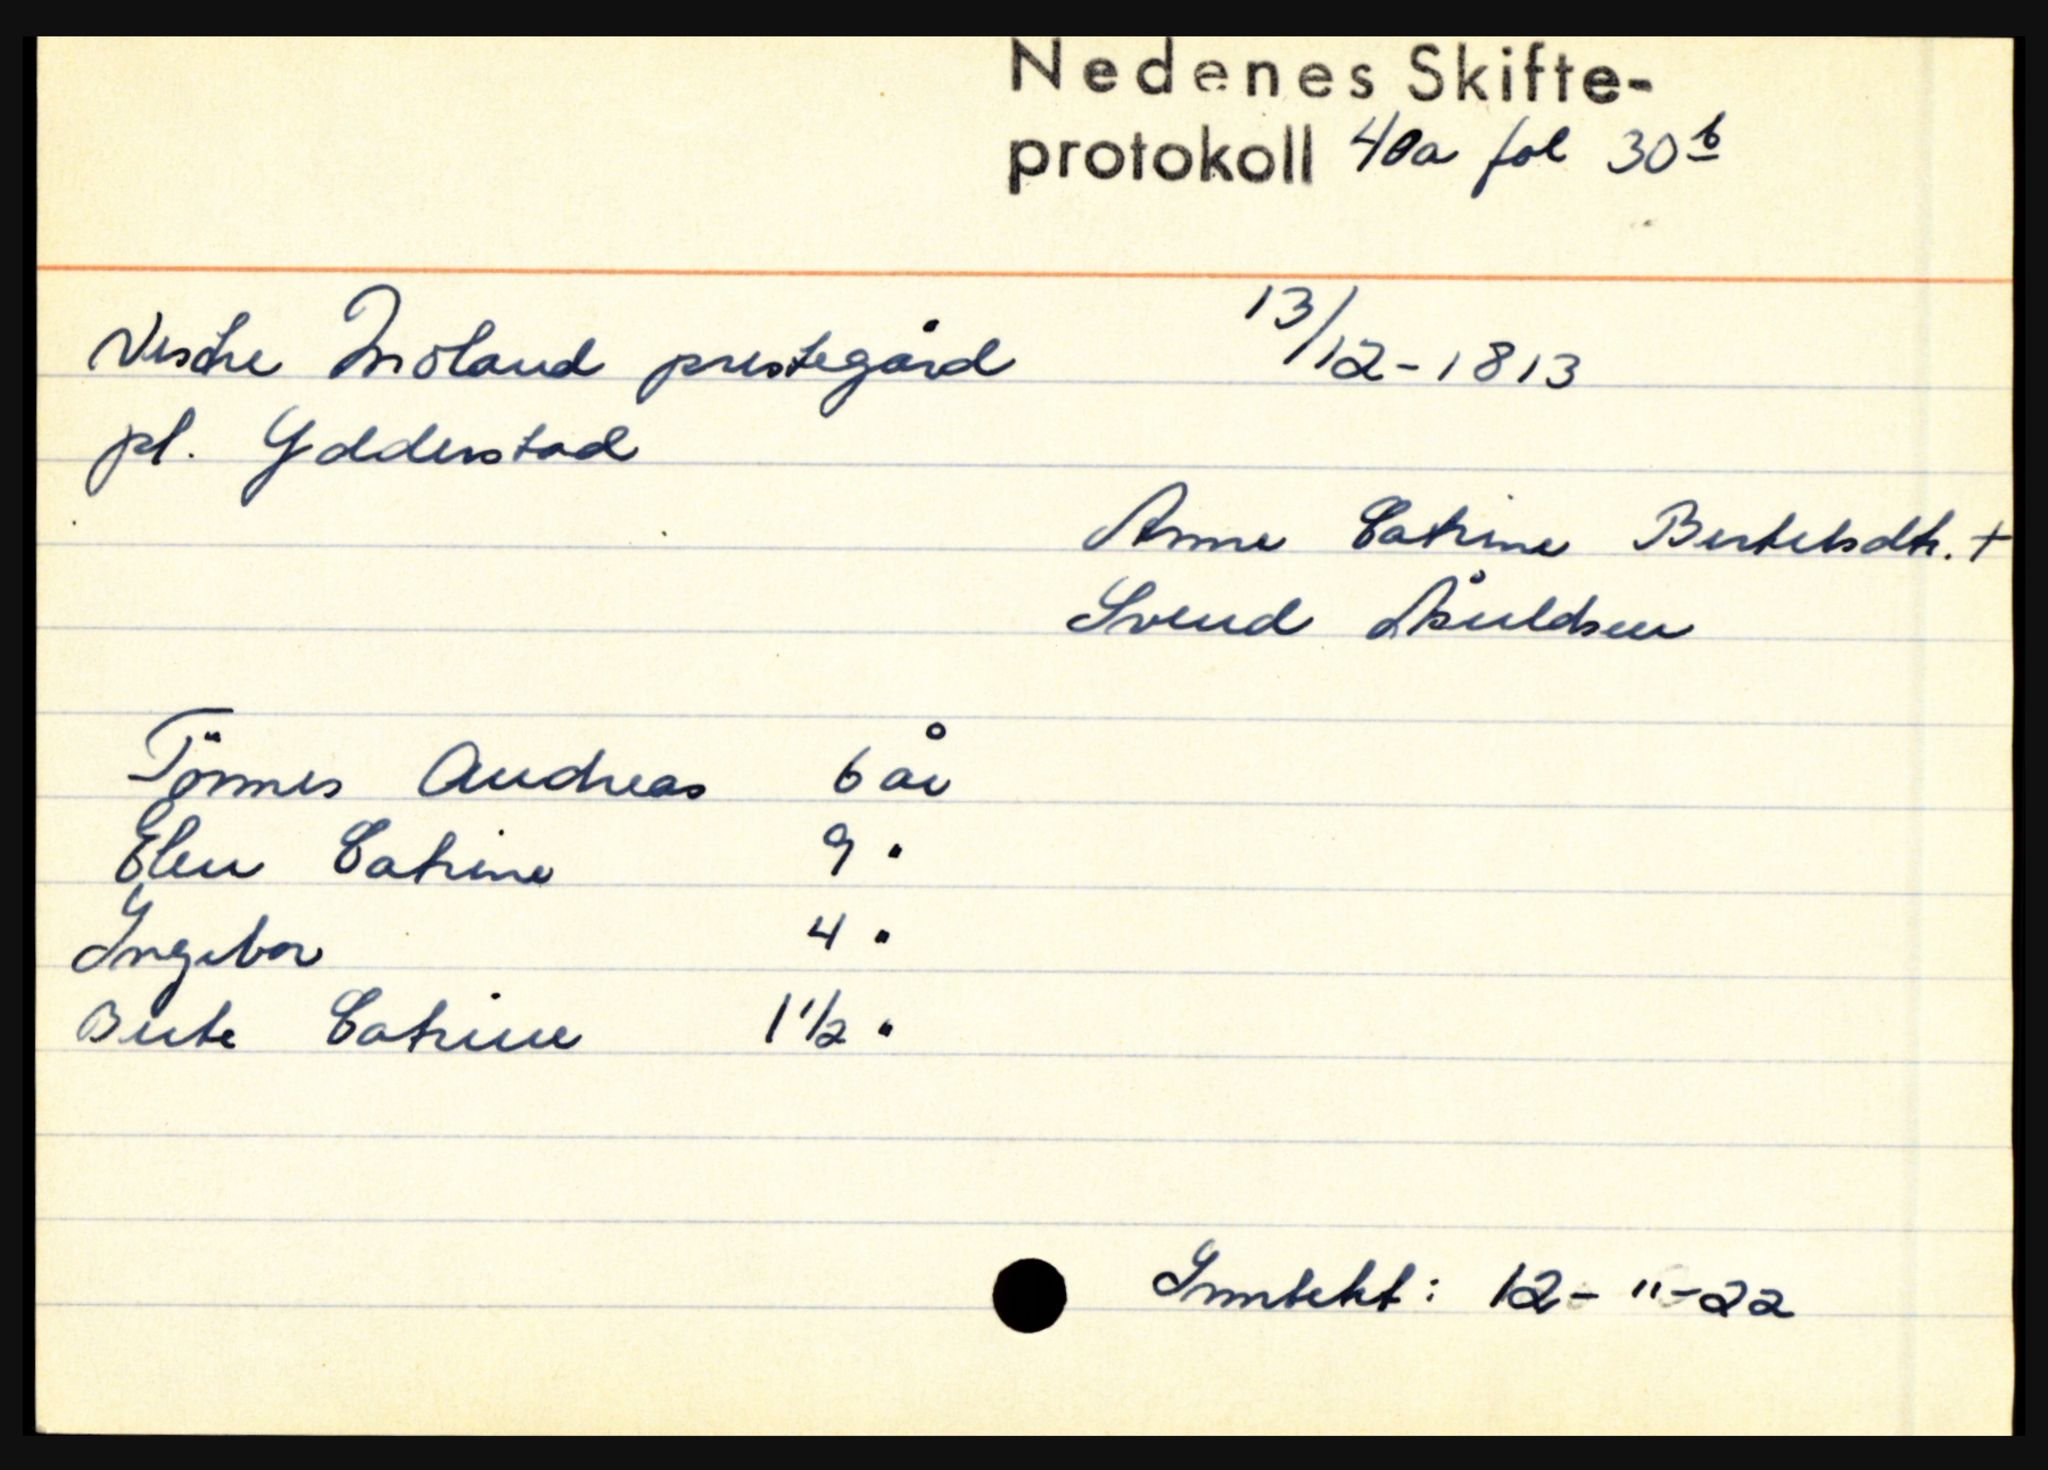 Nedenes Skifte-
protokoll 40a fol 30b
Vestre Moland prestegård 13/12-1813
pl. Ydderstad
Anne Catrine Bertelsdtr. +
Svend Åsuldsen
Tönnes Andreas 6 år
Elen Catrine 9 "
Ingebor 4 "
Berte Catrine 1 1/2 "
Inntekt: 12- "-22